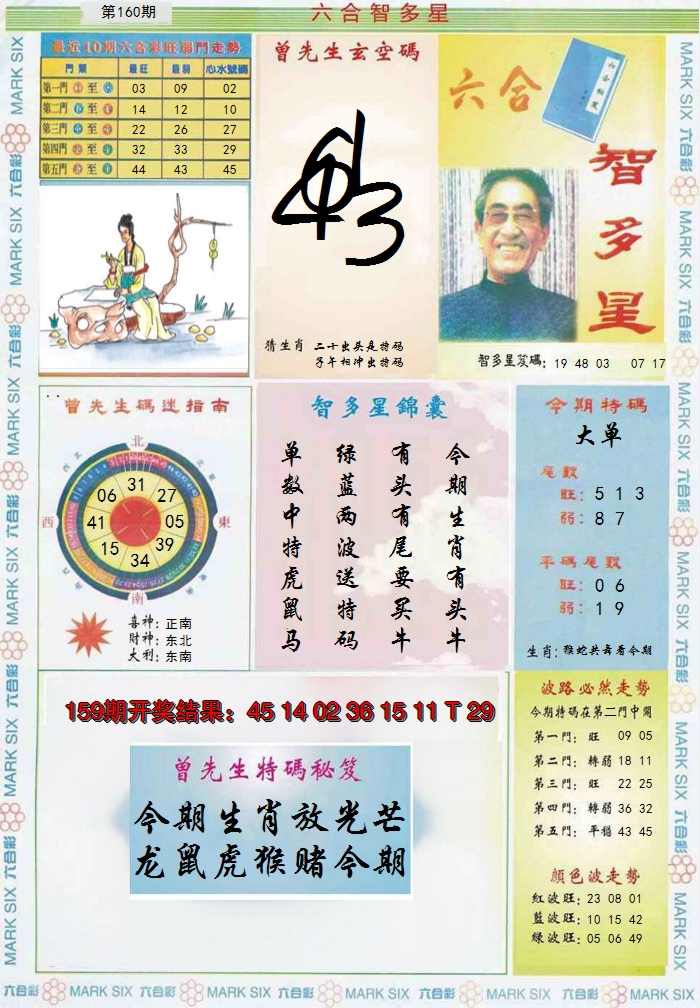 第160期
六合智多星
最近10期六合彩旺弱門走勢
門類 最旺 最弱 心水號碼
第一門 至 03 09 02
第二門 至 14 12 10
第三門 至 22 26 27
第四門 至 32 33 29
第五門 至 44 43 45
曾先生玄空碼
猜生肖 二十出头是特码
子午相冲出特码
六合
智多星
智多星笈碼: 19 48 03 07 17
曾先生碼迷指南
北
西
東
南
31
06 27
41 05
15 39
34
喜神: 正南
财神: 东北
大利: 东南
智多星錦囊
今期生肖有头牛
有头有尾要买牛
绿蓝两波送特码
单数中特虎鼠马
今期特碼
大单
尾數
旺: 5 1 3
弱: 8 7
平碼尾數
旺: 0 6
弱: 1 9
生肖: 猴蛇共舞看今期
159期开奖结果: 45 14 02 36 15 11 T 29
曾先生特碼秘笈
今期生肖放光芒
龙鼠虎猴赌今期
波路必然走勢
今期特碼在第二門中開
第一門: 旺 09 05
第二門: 轉弱 18 11
第三門: 旺 22 25
第四門: 轉弱 36 32
第五門: 平穩 43 45
顏色波走勢
紅波旺: 23 08 01
藍波旺: 10 15 42
綠波旺: 05 06 49
MARK SIX 六合彩